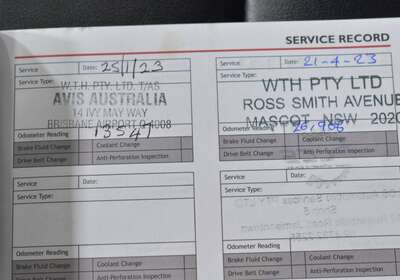 SERVICE RECORD
Service Date: 25/1/23
Service Type:
W.T.H. PTY. LTD. T/AS
AVIS AUSTRALIA
14 IVY MAY WAY
BRISBANE AIRPORT Q 4008
Odometer Reading 13541
Brake Fluid Change Coolant Change
Drive Belt Change Anti-Perforation Inspection
Service Date: 21-4-23
Service Type:
WTH PTY LTD
ROSS SMITH AVENUE
MASCOT, NSW 2020
Odometer Reading 26,968
Brake Fluid Change Coolant Change
Drive Belt Change Anti-Perforation Inspection
Service Date:
Service Type:
Odometer Reading
Brake Fluid Change Coolant Change
Drive Belt Change Anti-Perforation Inspection
Service Date:
Service Type:
Odometer Reading
Brake Fluid Change Coolant Change
Drive Belt Change Anti-Perforation Inspection